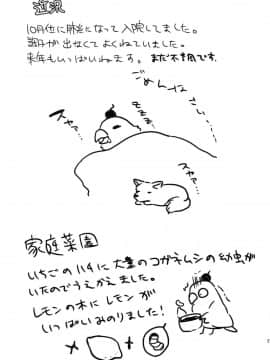 近況
10月位に肺炎になって入院してました。
調子が出なくてよくねていました。
来年もいっぱいねます。まだ本調です。
ごめんなさい……
スヤァ…
スヤァ…
家庭菜園
いちごのハチに大量のコガネムシの幼虫が
いたのでうえかえました。
レモンの木にレモンが
いっぱいみのりました!